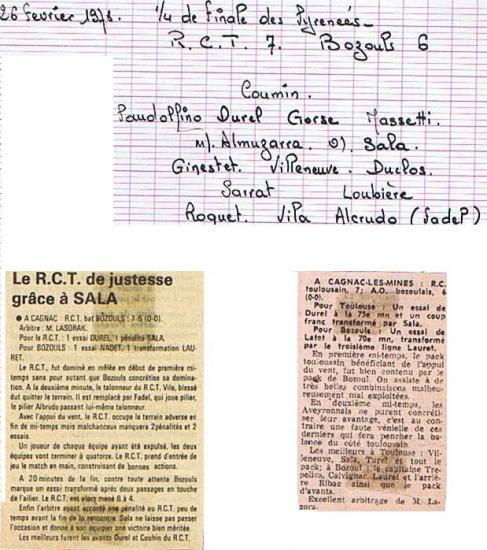 26 février 1978. 1/4 de finale des Pyreneés_
R.C.T. 7. Bozouls 6
Coumin.
Pandolfino Durel Gorse Massetti.
m). Almuzarra. o). Sala.
Ginestet. Villeneuve. Duclos.
Sarrat Loubière
Roquet. Vila Alcrudo (Fadel)
Le R.C.T. de justesse
grâce à SALA
● A CAGNAC R.C.T. bat BOZOULS : 7-6 (0-0).
Arbitre : M. LASORAK.
Pour le R.C.T. : 1 essai DUREL, 1 pénalité SALA.
Pour BOZOULS : 1 essai NADET, 1 transformation LAU-
RET.
Le R.C.T. fut dominé en mêlée en début de première mi-
temps sans pour autant que Bozouls concrétise sa domina-
tion. A la deuxième minute, le talonneur du R.C.T. Vila, blessé
dut quitter le terrain. Il est remplacé par Fadel, qui joue pilier,
le pilier Albrudo passant lui-même talonneur.
Avec l'appui du vent, le R.C.T. occupe le terrain adverse en
fin de mi-temps mais malchanceux manquera 2 pénalités et 2
essais.
Un joueur de chaque équipe ayant été expulsé, les deux
équipes vont terminer à quatorze. Le R.C.T. prend d'entrée de
jeu le match en main, construisant de bonnes actions.
A 20 minutes de la fin, contre toute attente Bozouls
marque un essai transformé après deux passages en touche
de l'ailier. Le R.C.T. est alors mené 6 à 4.
Enfin l'arbitre ayant accordé une pénalité au R.C.T, peu de
temps avant la fin de la rencontre, Sala ne laisse pas passer
l'occasion et donne à son équipe une victoire bien méritée.
Les meilleurs furent les avants Durel et Couhin du R.C.T.
A CAGNAC-LES-MINES : R.C.
toulousain, 7; A.O. bozoulais, 6
(0-0).
Pour Toulouse : Un essai de
Durel à la 75e mn et un coup
franc transformé par Sala.
Pour Bozouls : Un essai de
Latet à la 70e mn, transformé
par le troisième ligne Lauret.
En première mi-temps, le pack
toulousain bénéficiant de l'appui
du vent, fut bien contenu par le
pack de Bozoul. On assiste à de
très belles combinaisons malheu-
reusement mal exploitées.
En deuxième mi-temps, les
Aveyronnais ne purent concréti-
ser leur avantage, c'est au con-
traire une faute vénielle de ces
derniers qui fera pencher la ba-
lance du côté toulousain.
Les meilleurs à Toulouse : Vil-
leneuve, Sala, Turel et tout le
pack; à Bozoul : le capitaine Tre-
pelica, Calvignac, Lauret et l'arriè-
re Ribac ainsi que le pack
d'avants.
Excellent arbitrage de M. La-
zora.